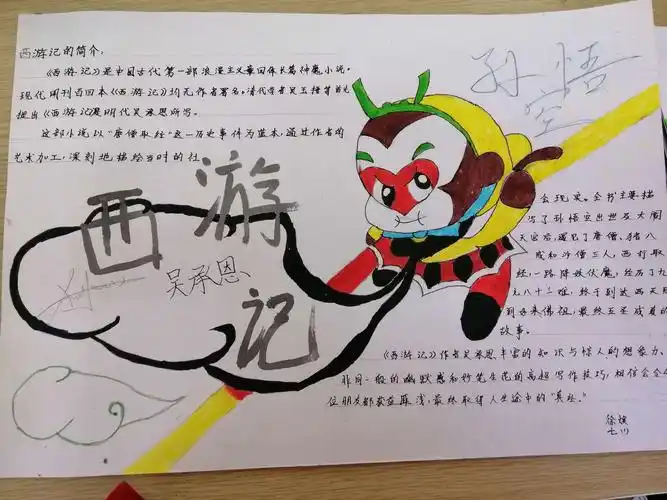 西游记的简介,
《西游记》是中国古代第一部浪漫主义章回体长篇神魔小说。
现代刊刊百回本《西游记》均无作者署名。清代学者吴玉搢等首先
提出《西游记》是明代吴承恩所写。
这部小说以"唐僧取经"这一历史事件为蓝本,通过作者的
艺术加工,深刻地描绘当时的社
孙悟
空
西游
记
吴承恩
会现实。全书主要描
写了孙悟空出世及大闹
天宫后,遇见了唐僧、猪八
戒和沙僧三人,西行取
经,一路降妖伏魔,经历了九
九八十一难,终于到达西天见
到如来佛祖,最终五圣成真的
故事。
《西游记》作者吴承恩丰富的知识与惊人的想象力、
非同一般的幽默感和妙笔生花的高超写作技巧,相信会令各
位朋友都获益匪浅,最终取得人生途中的"真经。"
徐
七